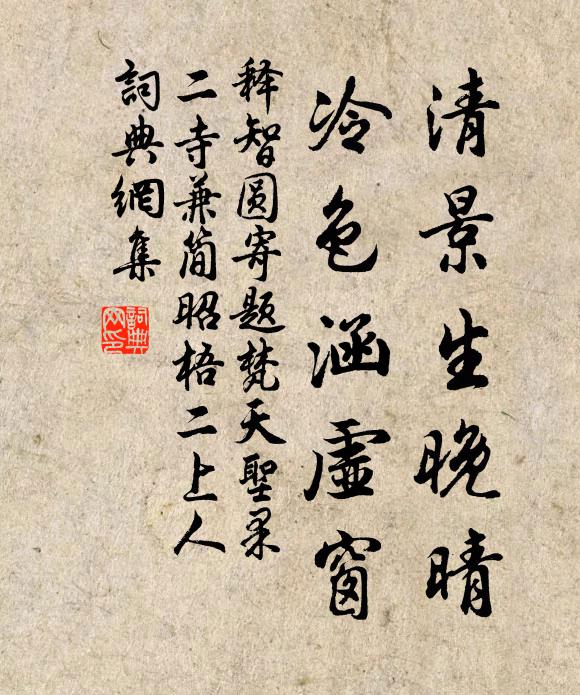 清景生晚晴
冷色涵虛窗
释智圆寄题梵天聖果
二寺兼简昭梧二上人
詞典網集
詞典網印